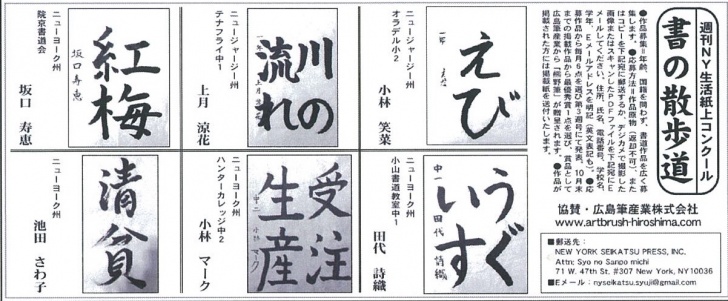 週刊NY生活紙上コンクール
書の散歩道
●作品募集=年齢、国籍を問わず、書道作品を広く募
集します。●応募方法=作品原物(返却不可)、また
はコピーを下記宛に郵送するか、デジカメで撮影した
画像またはスキャンしたPDFファイルを下記宛にE
メールしてください。住所、氏名、電話番号、学校名、
学年、Eメールアドレスを明記(英文表記も)。●応
募作品から毎月6点を選び第3週号にて発表。10月末
までの掲載作品から最優秀賞1点を選び、賞品として
広島筆産業から「熊野筆」が贈呈されます。●作品が
掲載された方には掲載紙を送付いたします。
協賛・広島筆産業株式会社
www.artbrush-hiroshima.com
■郵送先:
NEW YORK SEIKATSU PRESS, INC.
Attn: Syo no Sanpo michi
71 W. 47th St. #307 New York, NY10036
■Eメール:nyseikatsu.syuji@gmail.com
えび
ニュージャージー州
オラデル小2
小林 笑菜
川の
流れ
ニュージャージー州
テナフライ中1
上月 涼花
紅梅
坂口寿恵
ニューヨーク州
院京書道会
坂口 寿恵
うぐ
いす
中一 田代 詩織
ニューヨーク州
小山書道教室中1
田代 詩織
受注
生産
中二 小林 マーク
ニューヨーク州
ハンターカレッジ中2
小林 マーク
清貧
ニューヨーク州
池田 さわ子